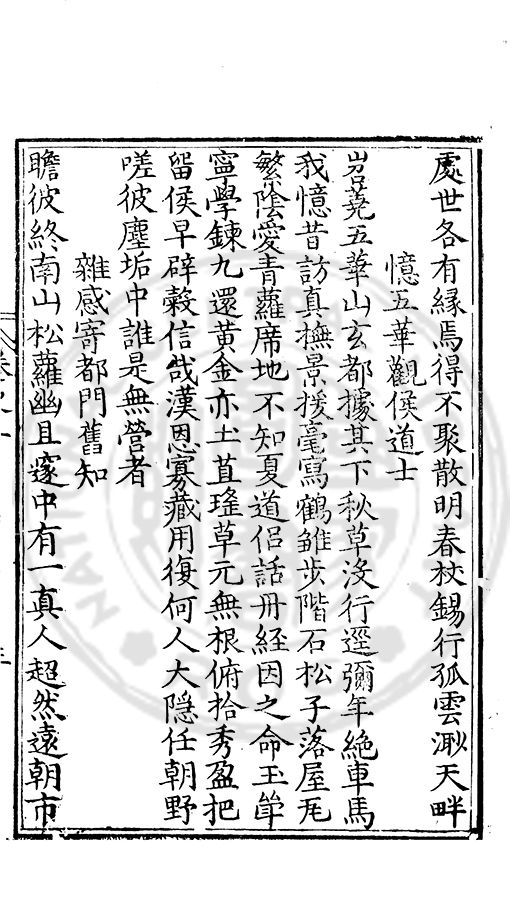 處世各有縁焉得不聚散明春杖錫行孤雲渺天畔
憶五華觀侯道士
岧蕘五華山玄都據其下秋草没行逕彌年絶車馬
我憶昔訪真撫景援毫寫鶴雛歩階石松子落屋瓦
繁陰愛青蘿席地不知夏道侶話丹經因之命玉斝
寧學鍊九還黄金亦土苴瑤草元無根俯拾秀盈把
留侯早辟穀信哉漢恩寡藏用復何人大隠任朝野
嗟彼塵垢中誰是無營者
雜感寄都門舊知
瞻彼終南山松蘿幽且邃中有一真人超然遠朝市